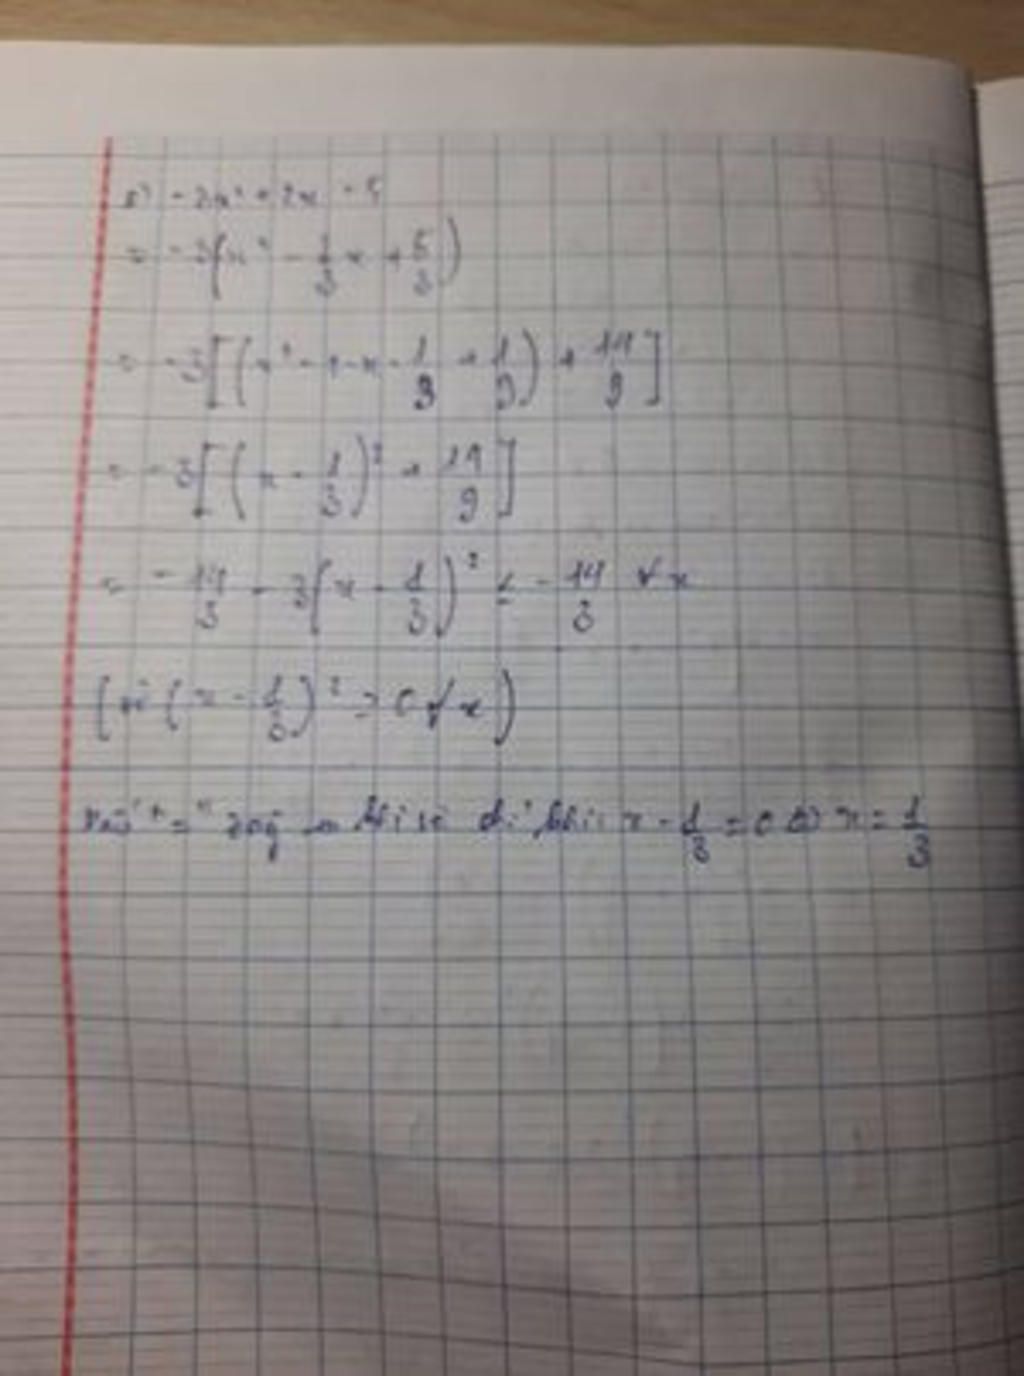 -3x² + 2x - 5
= -3(x² - 2/3 x + 5/3)
= -3[(x² - 2·x·1/3 + 1/9) + 14/9]
= -3[(x - 1/3)² + 14/9]
= -14/3 - 3(x - 1/3)² ≤ -14/3 ∀x
(vì (x - 1/3)² ≥ 0 ∀x)
Dấu "=" xảy ra khi và chỉ khi x - 1/3 = 0 ⇔ x = 1/3